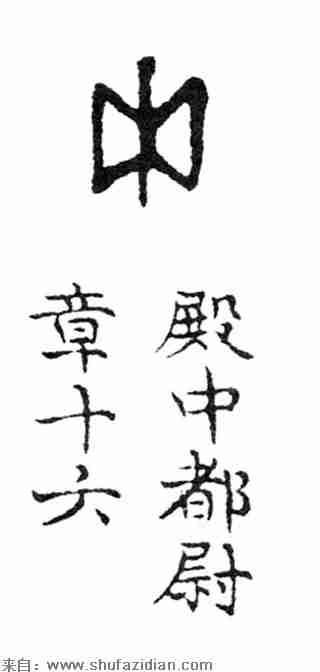 中
殿中都尉
章十六
来自：www.shufazidian.com